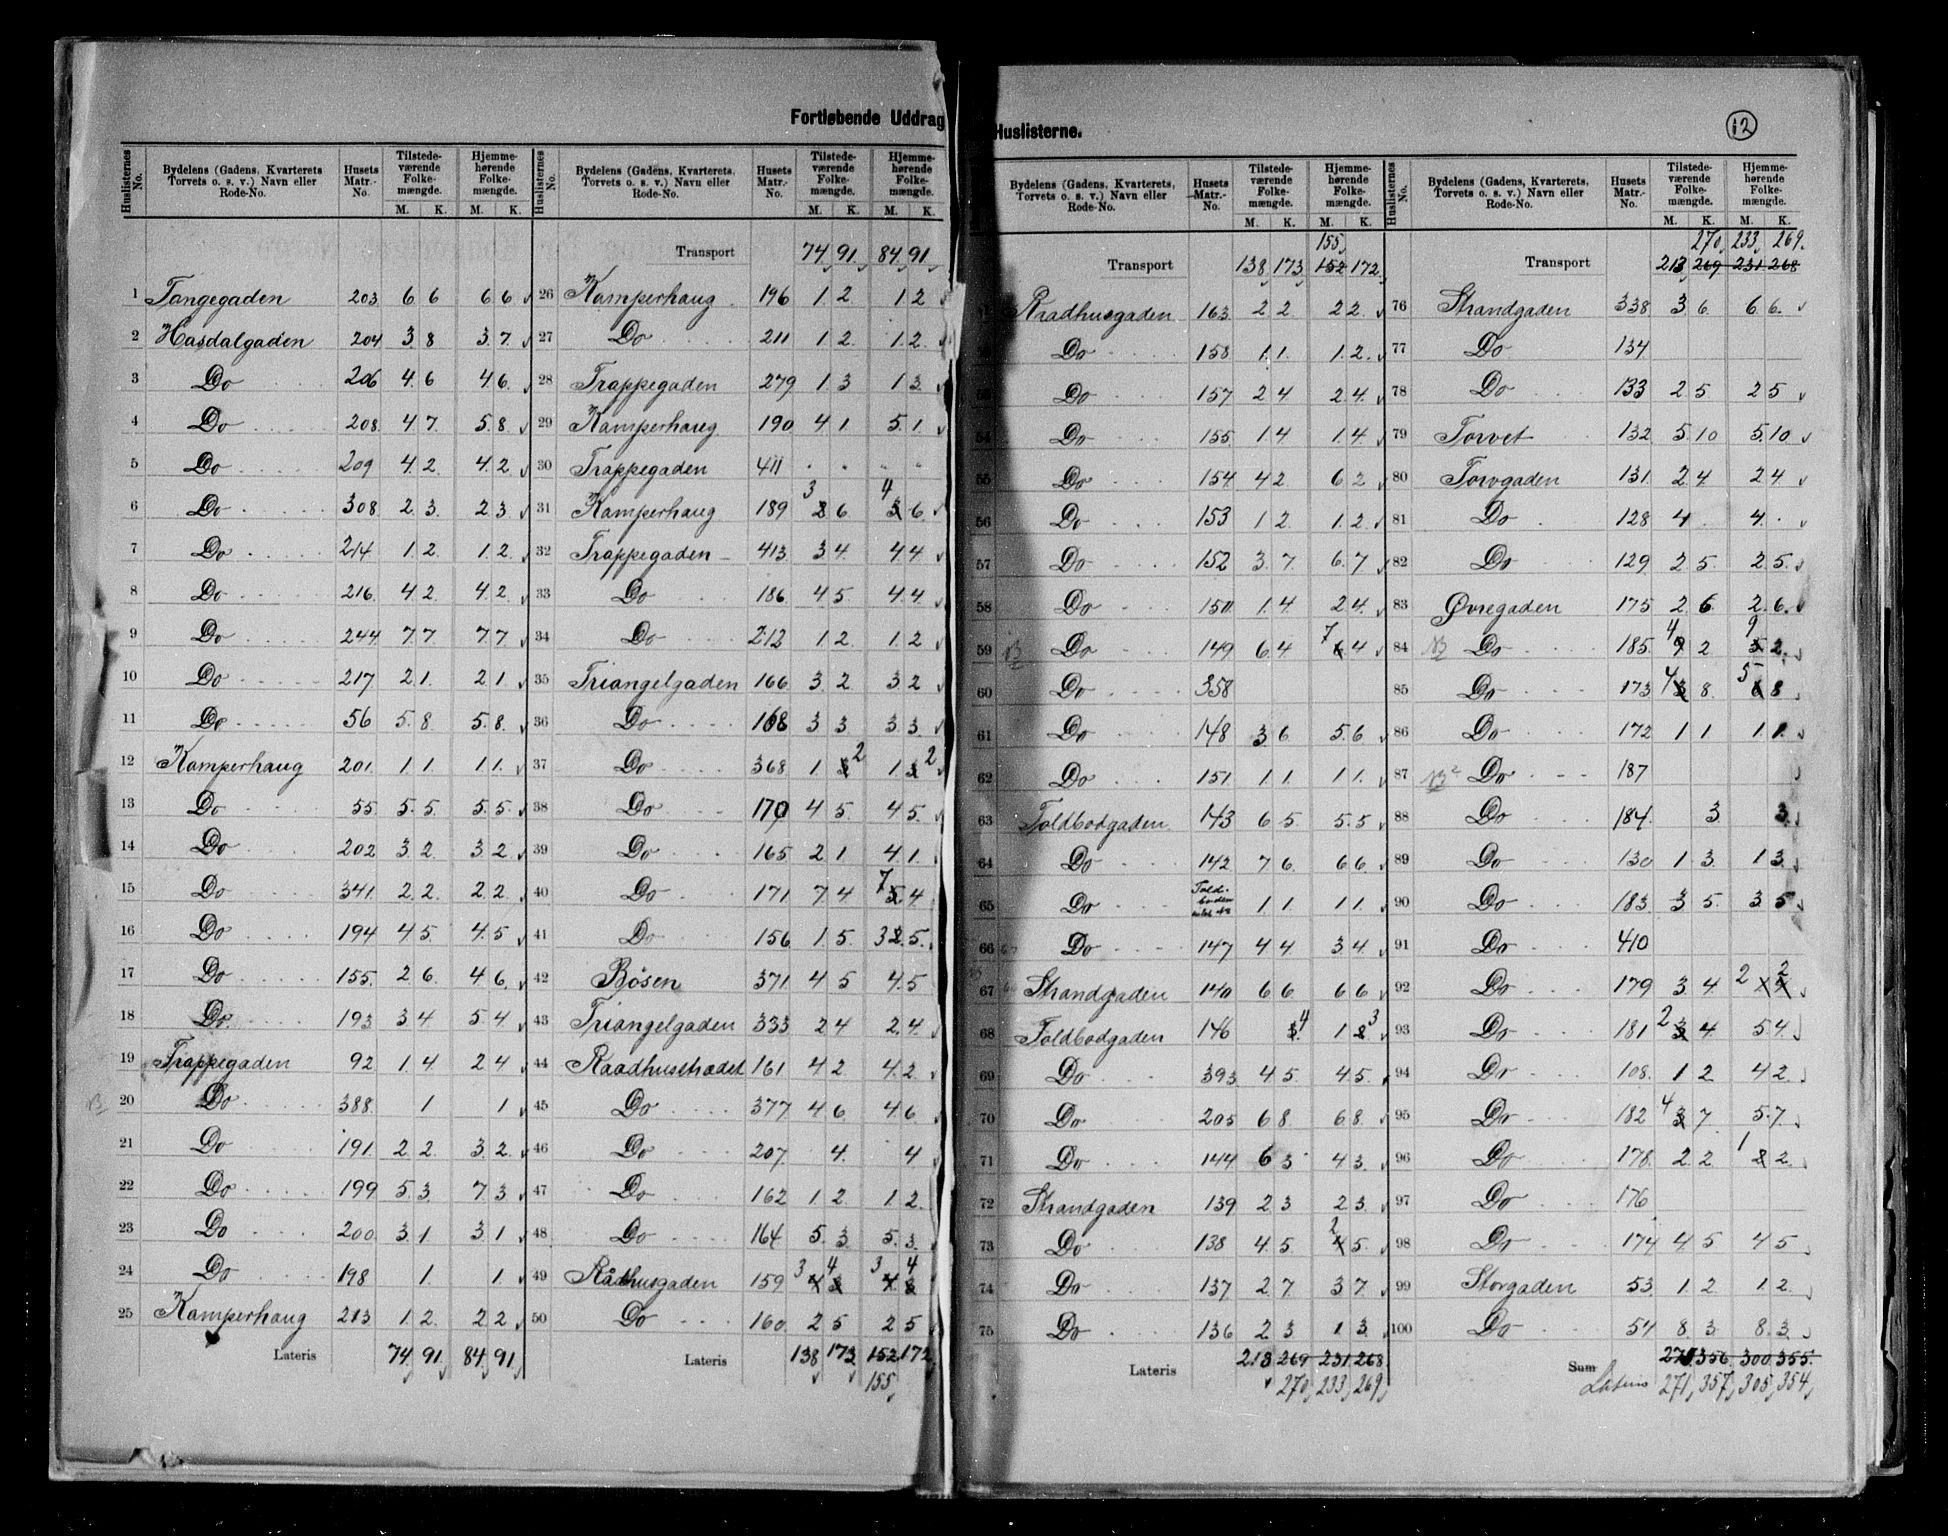 Fortløbende Uddrag Huslisterne.
12
Huslisternes No. Bydelens (Gadens, Kvarterets Torvets o. s. v.) Navn eller Rode-No. Husets Matr.-No. Tilstedeværende Folkemængde. M. K. Hjemmehørende Folkemængde. M. K.
1 Tangegaden 203 6 6 6 6
2 Hasdalgaden 204 3 8 3 7
3 Do 206 4 6 4 6
4 Do 208 4 7 5 8
5 Do 209 4 2 4 2
6 Do 308 2 3 2 3
7 Do 214 1 2 1 2
8 Do 216 4 2 4 2
9 Do 244 7 7 7 7
10 Do 217 2 1 2 1
11 Do 56 5 8 5 8
12 Kamperhaug 201 1 1 1 1
13 Do 55 5 5 5 5
14 Do 202 3 2 3 2
15 Do 341 2 2 2 2
16 Do 194 4 5 4 5
17 Do 155 2 6 4 6
18 Do 193 3 4 5 4
19 Trappegaden 92 1 4 2 4
20 Do 388 1 1
21 Do 191 2 2 3 2
22 Do 199 5 3 7 3
23 Do 200 3 1 3 1
24 Do 198 1 1
25 Kamperhaug 213 1 2 2 2
Lateris 74 91 84 91
Huslisternes No. Bydelens (Gadens, Kvarterets Torvets o. s. v.) Navn eller Rode-No. Husets Matr.-No. Tilstedeværende Folkemængde. M. K. Hjemmehørende Folkemængde. M. K.
Transport 74 91 84 91
26 Kamperhaug 196 1 2 1 2
27 Do 211 1 2 1 2
28 Trappegaden 279 1 3 1 3
29 Kamperhaug 190 4 1 5 1
30 Trappegaden 411
31 Kamperhaug 189 3 2 6 4 3 6
32 Trappegaden 413 3 4 4 4
33 Do 186 4 5 4 4
34 Do 212 1 2 1 2
35 Triangelgaden 166 3 2 3 2
36 Do 168 3 3 3 3
37 Do 368 1 3 2 1 3 2
38 Do 170 4 5 4 5
39 Do 165 2 1 4 1
40 Do 171 7 4 7 5 4
41 Do 156 1 5 3 2 5
42 Bøsen 371 4 5 4 5
43 Triangelgaden 333 2 4 2 4
44 Raadhusstrædet 161 4 2 4 2
45 Do 377 4 6 4 6
46 Do 207 4 4
47 Do 162 1 2 1 2
48 Do 164 5 3 5 3
49 Rådhusgaden 159 3 4 4 3 3 4 4 3
50 Do 160 2 5 2 5
Lateris 138 173 152 172
155
Bydelens (Gadens, Kvarterets, Torvets o. s. v.) Navn eller Rode-No. Husets Matr.-No. Tilstedeværende Folkemængde. M. K. Hjemmehørende Folkemængde. M. K.
155
Transport 138 173 152 172
Raadhusgaden 163 2 2 2 2
Do 158 1 1 1 2
Do 157 2 4 2 4
54 Do 155 1 4 1 4
55 Do 154 4 2 6 2
56 Do 153 1 2 1 2
57 Do 152 3 7 6 7
58 Do 150 1 4 2 4
59 Do 149 6 4 7 6 4
60 Do 358
61 Do 148 3 6 5 6
62 Do 151 1 1 1 1
63 Toldbodgaden 143 6 5 5 5
64 Do 142 7 6 6 6
65 Do Toldboden 1 1 1 1
66 Do 147 4 4 3 4
67 Strandgaden 140 6 6 6 6
68 Toldbodgaden 146 3 4 1 2 3
69 Do 393 4 5 4 5
70 Do 205 6 8 6 8
71 Do 144 6 3 4 3
72 Strandgaden 139 2 3 2 3
73 Do 138 4 5 2 4 5
74 Do 137 2 7 3 7
75 Do 136 2 3 1 3
Lateris 213 269 231 268
270 233 269
Huslisternes No. Bydelens (Gadens, Kvarterets, Torvets o. s. v.) Navn eller Rode-No. Husets Matr.-No. Tilstedeværende Folkemængde. M. K. Hjemmehørende Folkemængde. M. K.
270 233 269
Transport 213 269 231 268
76 Strandgaden 338 3 6 6 6
77 Do 134
78 Do 133 2 5 2 5
79 Torvet 132 5 10 5 10
80 Torvgaden 131 2 4 2 4
81 Do 128 4 4
82 Do 129 2 5 2 5
83 Øvregaden 175 2 6 2 6
84 Do 185 4 9 2 9 5 2
85 Do 173 4 3 8 5 6 8
86 Do 172 1 1 1 1
87 Do 187
88 Do 184 3 3
89 Do 130 1 3 1 3
90 Do 183 3 5 3 5
91 Do 410
92 Do 179 3 4 2 2
93 Do 181 2 3 4 5 4
94 Do 108 1 2 4 2
95 Do 182 4 3 7 5 7
96 Do 178 2 2 1 2 2
97 Do 176
98 Do 174 4 5 4 5
99 Storgaden 53 1 2 1 2
100 Do 54 8 3 8 3
Sum 270 356 300 355
Lateris 271 357 305 354